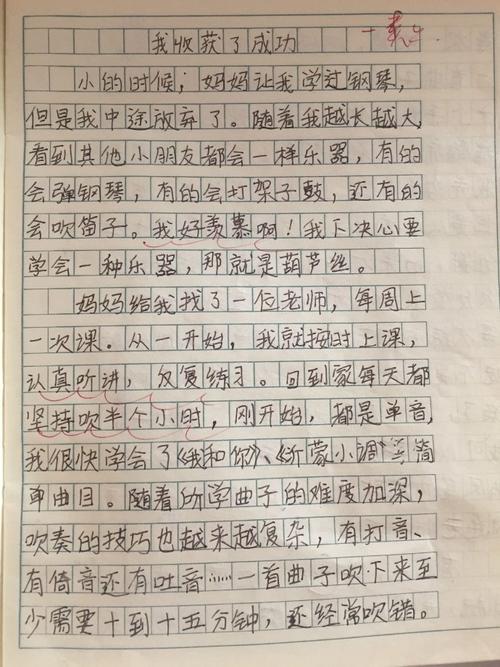 我收获了成功
小的时候；妈妈让我学过钢琴，
但是我中途放弃了。随着我越长越大，
看到其他小朋友都会一样乐器，有的
会弹钢琴，有的会打架子鼓，还有的
会吹笛子。我好羡慕啊！我下决心要
学会一种乐器，那就是葫芦丝。
妈妈给我找了一位老师，每周上
一次课。从一开始，我就按时上课，
认真听讲，反复练习。回到家每天都
坚持吹半个小时，刚开始，都是单音，
我很快学会了《我和你》、《沂蒙小调》简
单曲目。随着所学曲子的难度加深，
吹奏的技巧也越来越复杂，有打音、
有倚音还有吐音……一首曲子吹下来至
少需要十到十五分钟，还经常吹错。